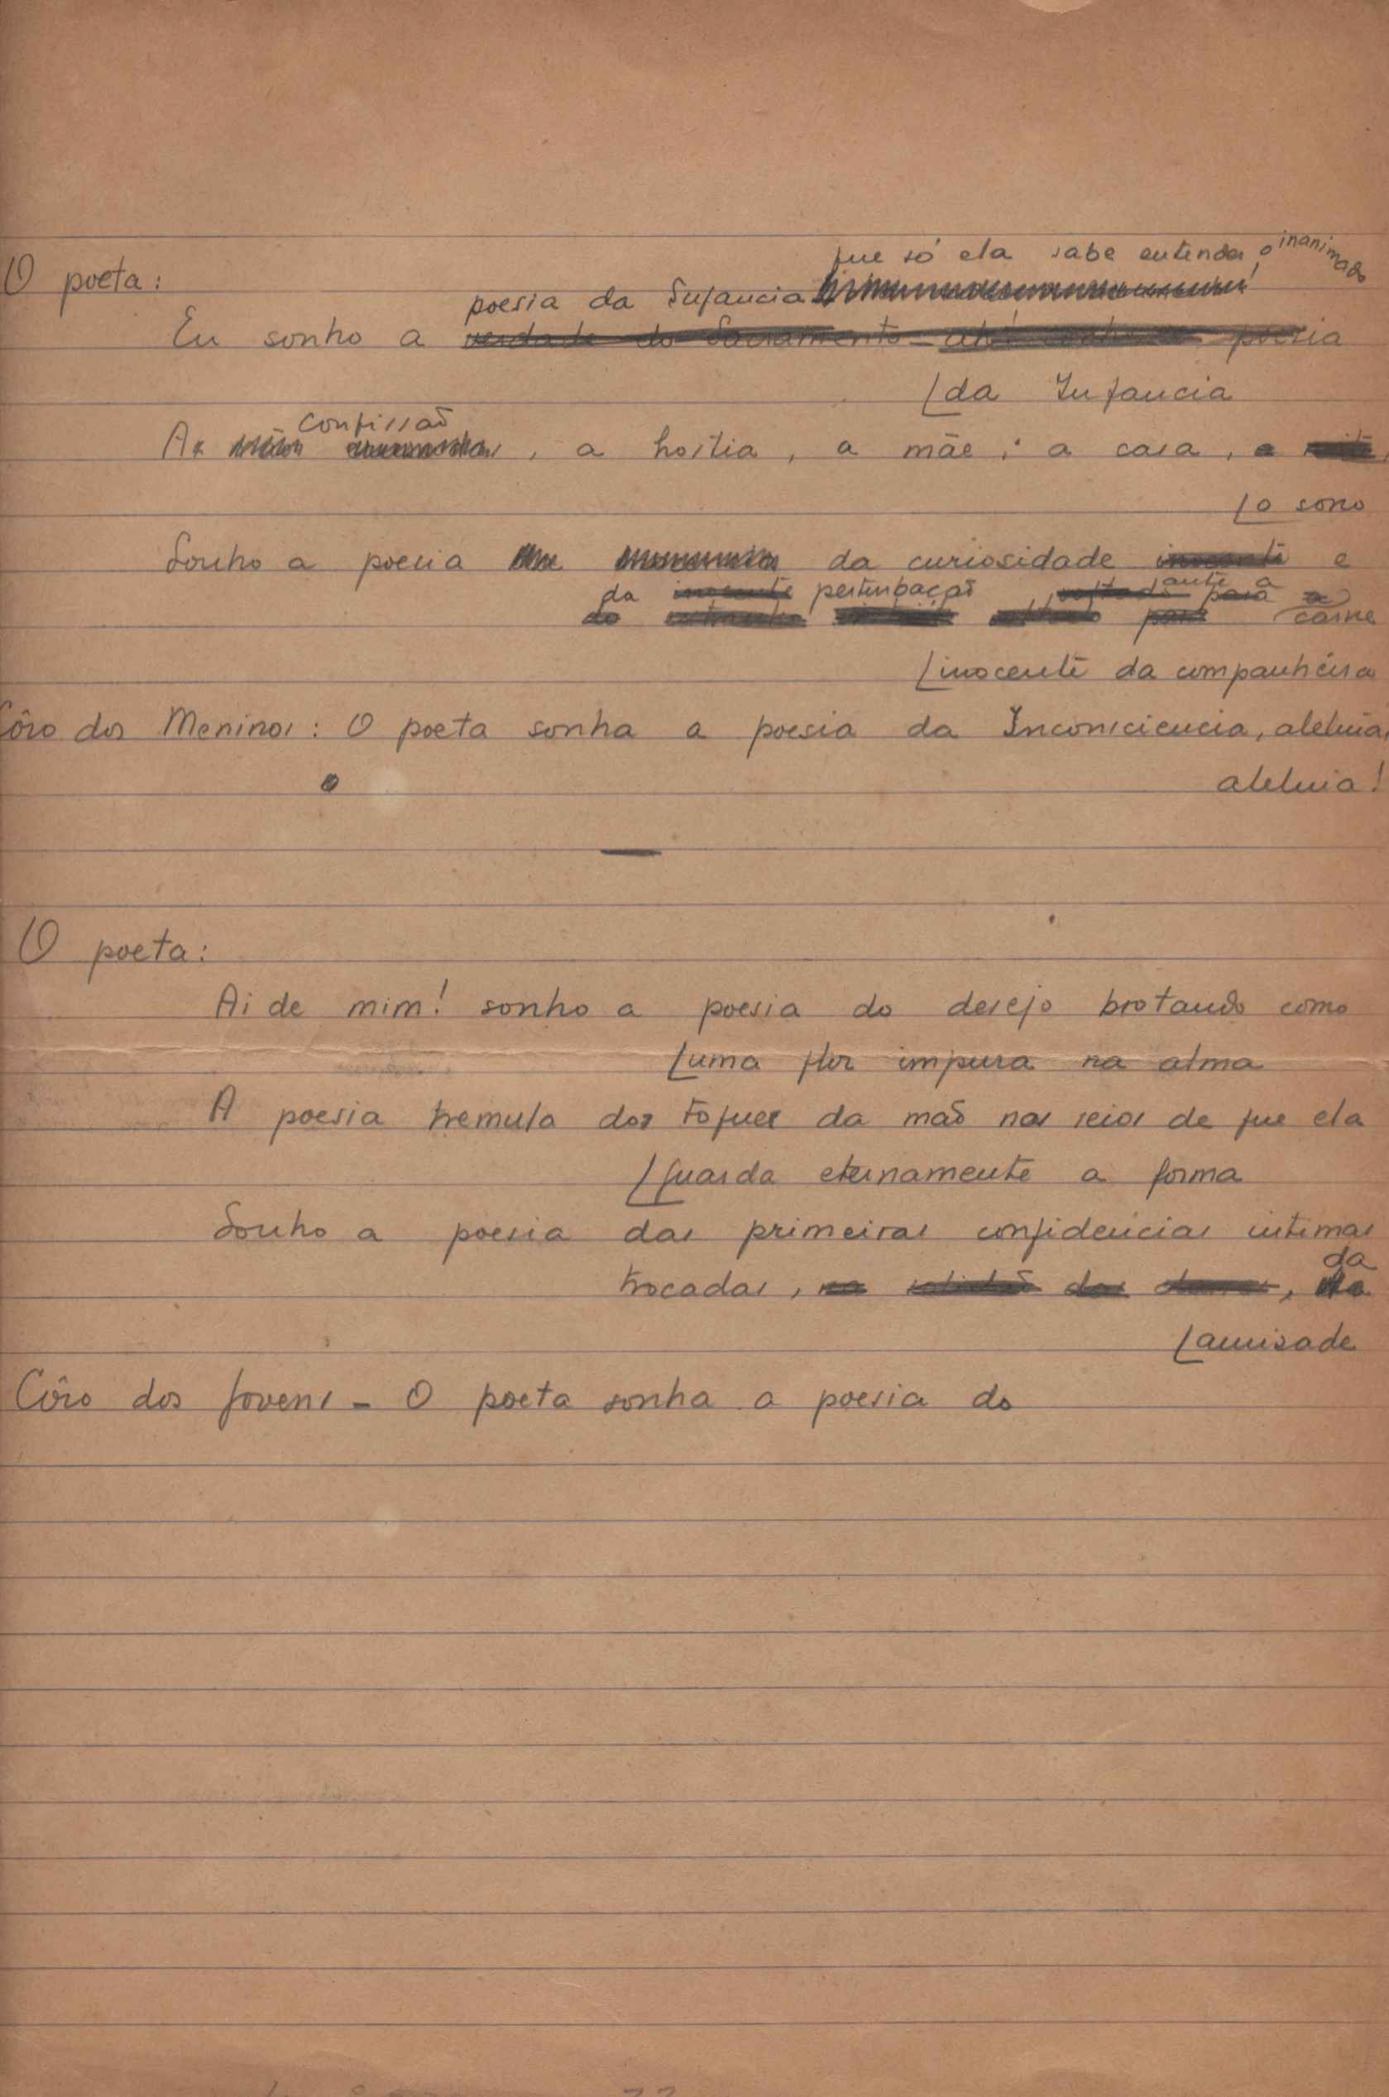 O poeta:
que só ela sabe entender o inanimado
poesia da Infancia
Eu sonho a verdade do Sacramento poesia
[da Infancia
confissão
A , a hostia, a mãe, a casa,
[o sono
Sonho a poesia da curiosidade inocente e
da inocente perturbação voltada para ante a
do para carne
[inocente da companheira
Côro dos Meninos: O poeta sonha a poesia da Inconsciencia, aleluia,
aleluia!
O poeta:
Ai de mim! sonho a poesia do desejo brotando como
[uma flor impura na alma
A poesia tremula dos toques da mão nos seios de que ela
[guarda eternamente a forma
Sonho a poesia das primeiras confidencias intimas
da
trocadas, na solidão das
[amisade
Côro dos Jovens - O poeta sonha a poesia do